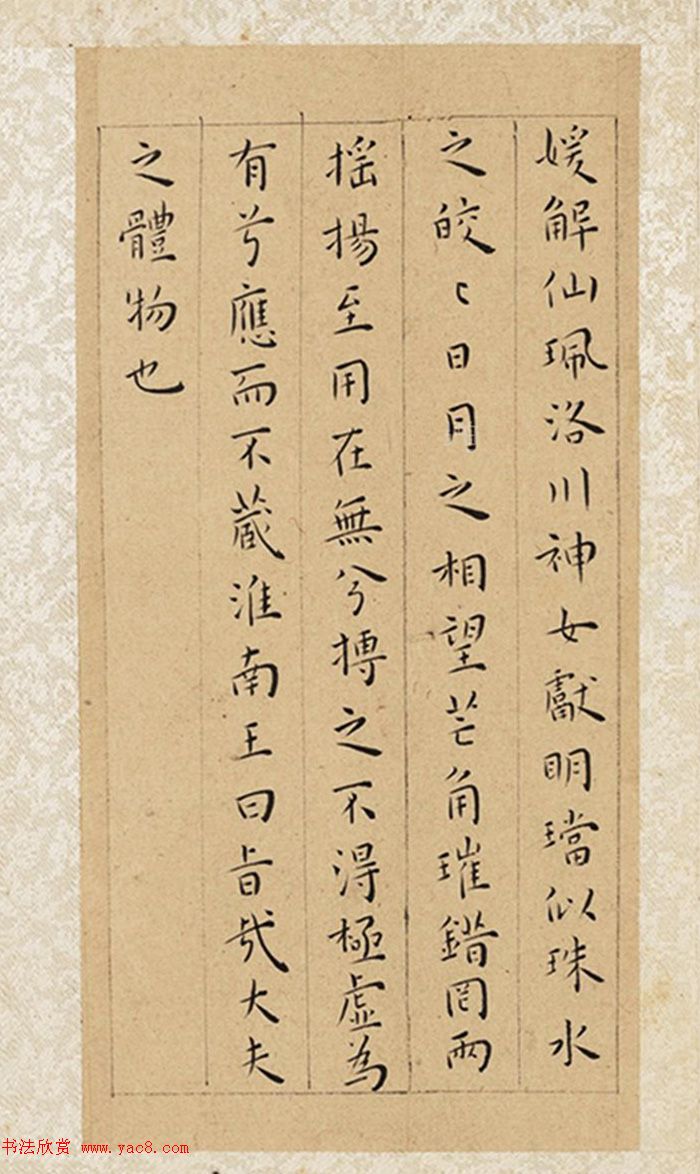 媛解仙珮洛川神女獻明璫似珠水
之皎〻日月之相望芒角璀錯罔兩
揺揚至用在無兮摶之不得極虛為
有兮應而不蔵淮南王曰旨哉大夫
之體物也
书法欣赏 www.yac8.com